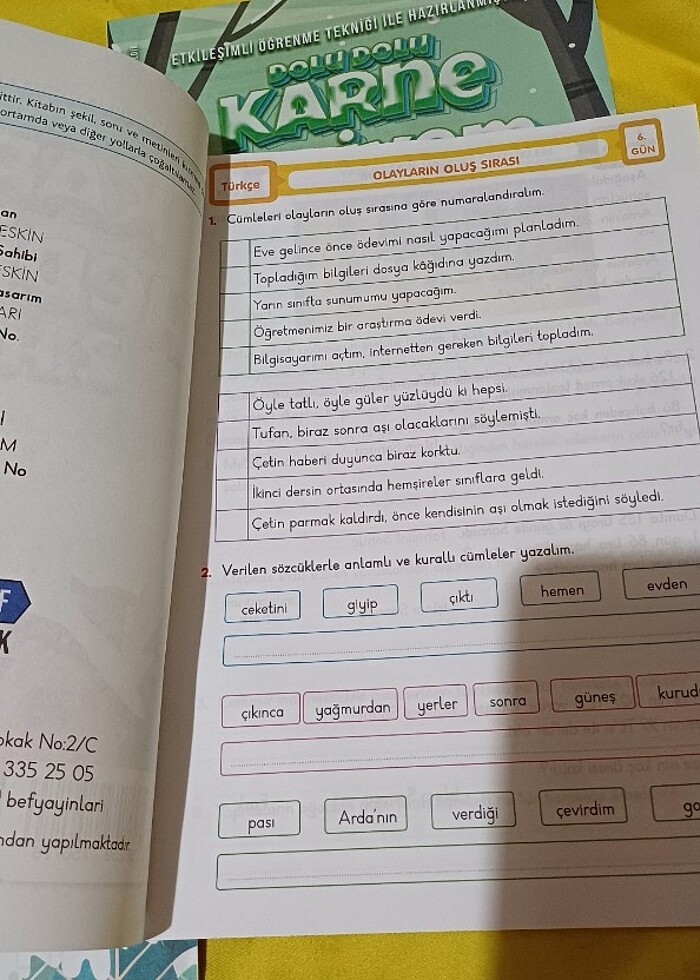 ETKİLEŞİMLİ ÖĞRENME TEKNİĞİ İLE
DOLU DOLU
KARNE
ittir. Kitabın şekil, soru ve metinleri
ortamda veya diğer yollarla çoğaltılamaz.
an
ESKİN
Sahibi
ESKİN
asarım
ARI
No.
M
No
F
K
okak No:2/C
335 25 05
befyayinlari
ndan yapılmaktadır.
Türkçe
OLAYLARIN OLUŞ SIRASI
6.
GÜN
1. Cümleleri olayların oluş sırasına göre numaralandıralım.
Eve gelince önce ödevimi nasıl yapacağımı planladım.
Topladığım bilgileri dosya kâğıdına yazdım.
Yarın sınıfta sunumumu yapacağım.
Öğretmenimiz bir araştırma ödevi verdi.
Bilgisayarımı açtım, internetten gereken bilgileri topladım.
Öyle tatlı, öyle güler yüzlüydü ki hepsi.
Tufan, biraz sonra aşı olacaklarını söylemişti.
Çetin haberi duyunca biraz korktu.
İkinci dersin ortasında hemşireler sınıflara geldi.
Çetin parmak kaldırdı, önce kendisinin aşı olmak istediğini söyledi.
2. Verilen sözcüklerle anlamlı ve kurallı cümleler yazalım.
ceketini giyip çıktı hemen evden
çıkınca yağmurdan yerler sonra güneş kurud
pası Arda'nın verdiği çevirdim go